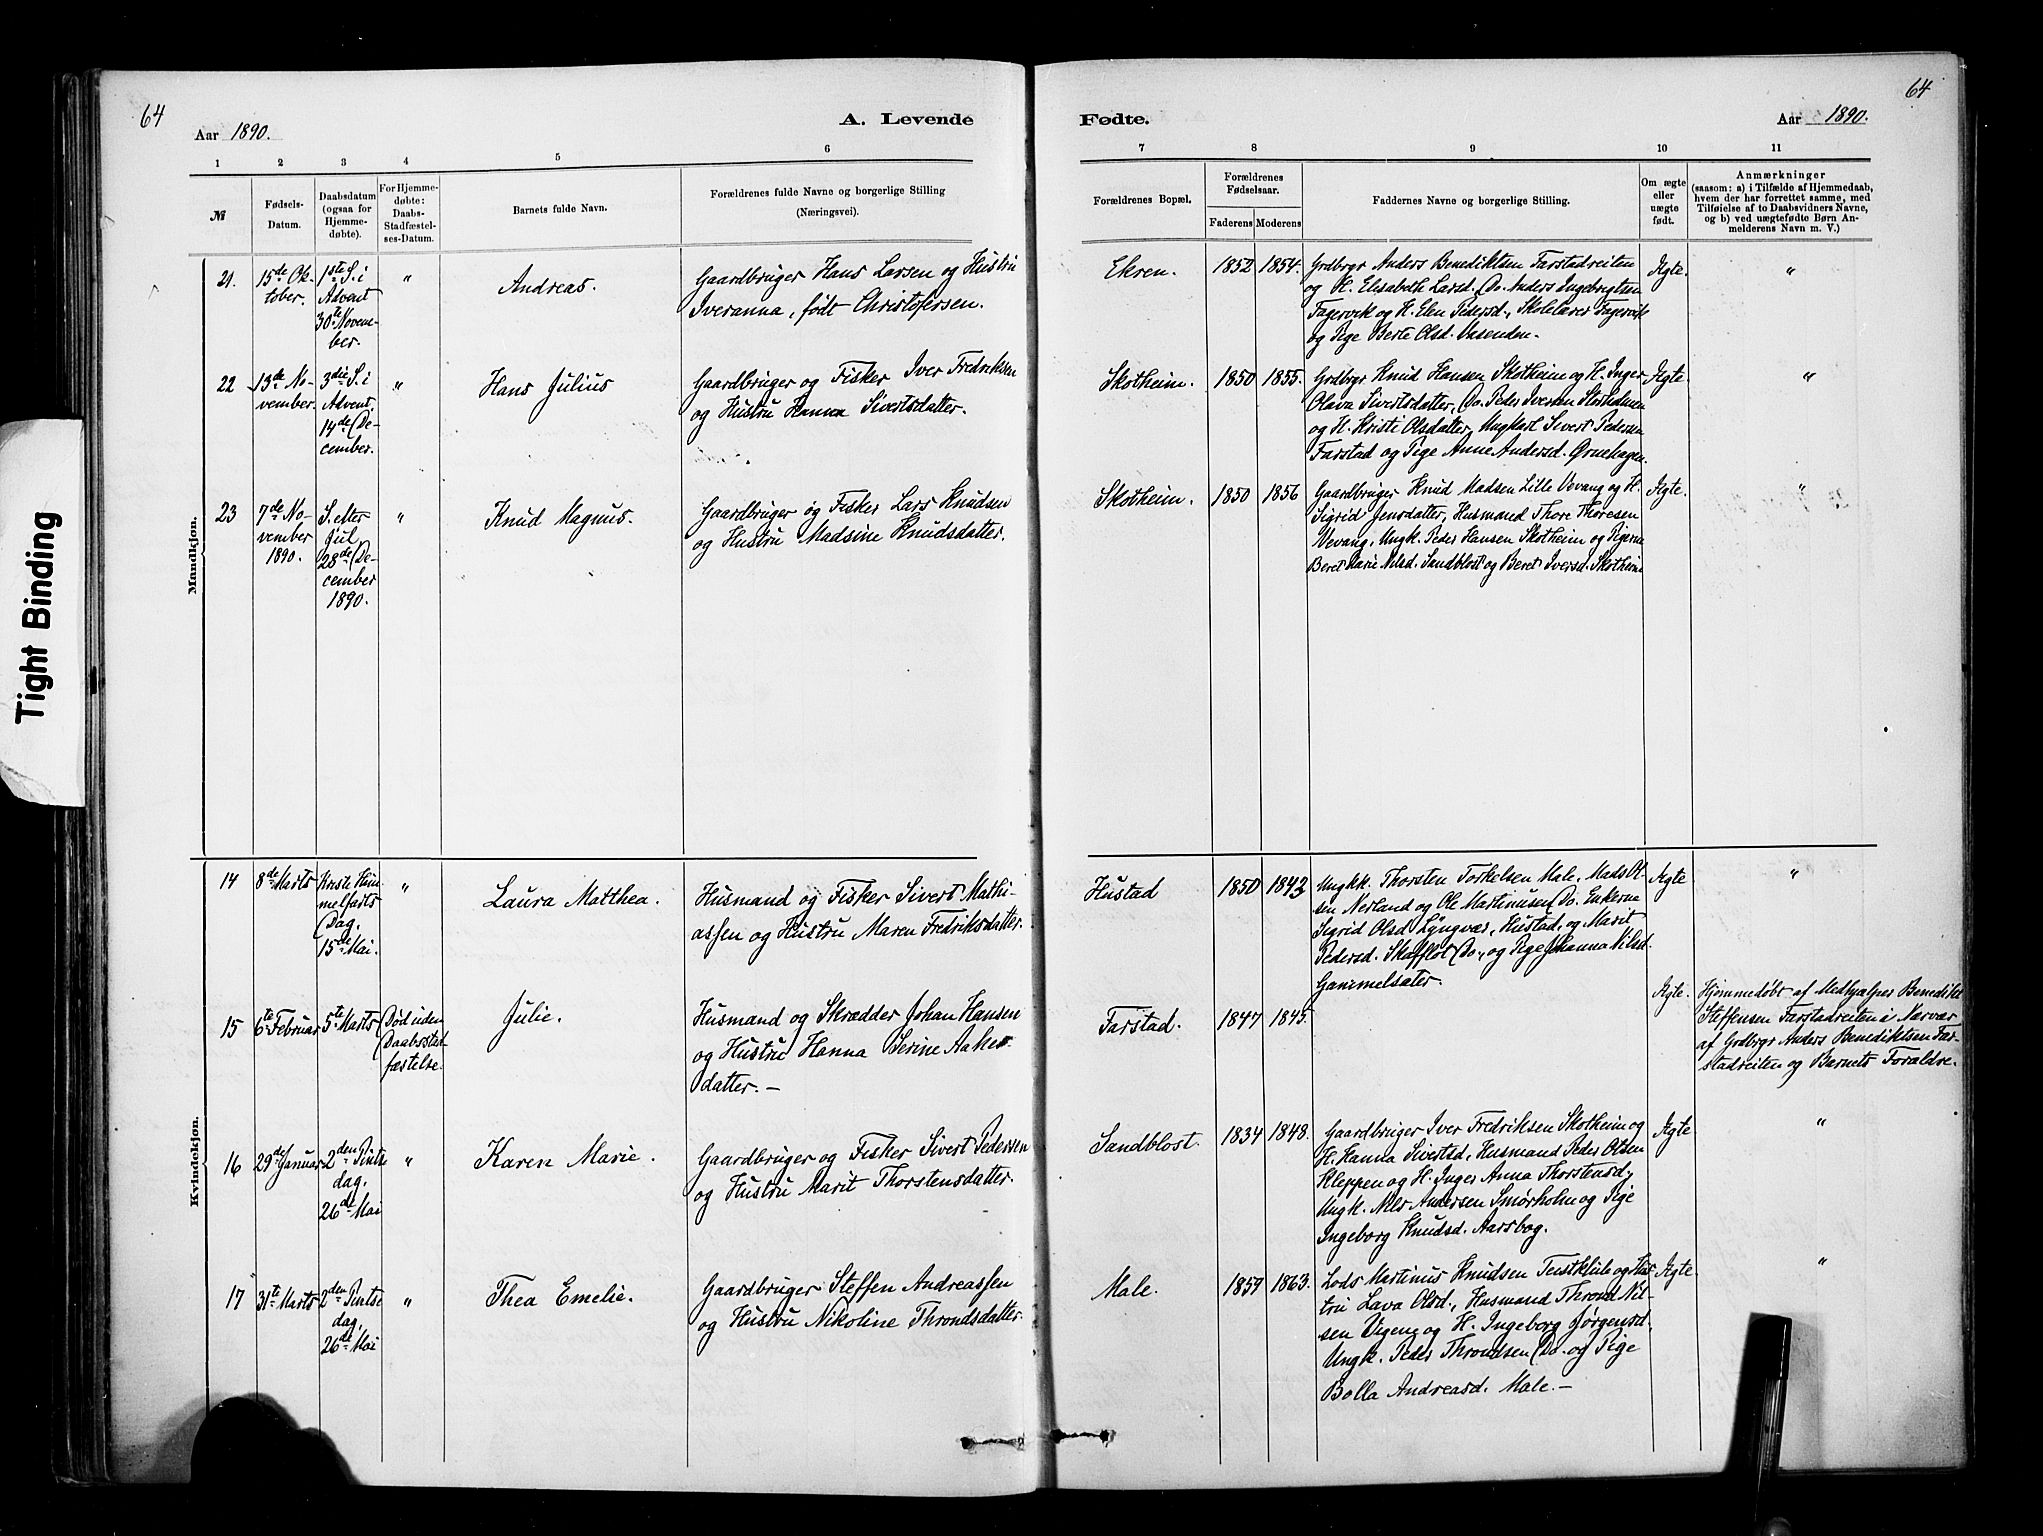 Tight Binding
64
Aar 1890.
A. Levende
1
2
3
4
5
6
№
Fødsels-
Datum.
Daabsdatum
(ogsaa for
Hjemme-
døbte).
For Hjemme-
døbte:
Daabs-
Stadfæstel-
ses-Datum.
Barnets fulde Navn.
Forældrenes fulde Navne og borgerlige Stilling
(Næringsvei).
Mandkjøn.
21.
15de Ok-
tober.
1ste S. i
Advent
30te Novem-
ber.
"
Andreas.
Gaardbruger Hans Larsen og Hustru
Iveranna, født Christofersen.
22
13de No-
vember.
3die S. i
Advent,
14de De-
cember.
"
Hans Julius
Gaardbruger og Fisker Iver Fredriksen
og Hustru Hanna Sivertsdatter.
23
7de No-
vember
1890.
S. efter
Jul
28de De-
cember
1890.
"
Knud Magnus.
Gaardbruger og Fisker Lars Knudsen
og Hustru Madsine Knudsdatter.
Kvindekjøn.
14
8de Marts
Kriste Him-
melfarts
Dag,
15de Mai.
"
Laura Matthea.
Husmand og Fisker Sivert Mathi-
assen og Hustru Maren Fredriksdatter.
15
6te Februar
5te Marts
Død uden
Daabsstad-
fæstelse.
Julie.
Husmand og Skrædder Johan Hansen
og Hustru Hanna Serine Aake-
datter. —
16
29de Januar
2den Pintse
dag,
26de Mai
"
Karen Marie.
Gaardbruger og Fisker Sivert Pedersen
og Hustru Marit Thorstensdatter.
17
31te Marts
2den Pintse
dag,
26de Mai
"
Thea Emelie.
Gaardbruger Steffen Andreassen
og Hustru Nikoline Throndsdatter.
64
Fødte.
Aar 1890.
7
8
9
10
11
Forældrenes Bopæl.
Forældrenes
Fødselsaar.
Faderens
Moderens
Faddernes Navne og borgerlige Stilling.
Om ægte
eller
uægte
født.
Anmærkninger
(saasom: a) i Tilfælde af Hjemmedaab,
hvem der har forrettet samme, med
Tilføielse af to Daabsvidners Navne,
og b) ved uægtefødte Børn An-
melderens Navn m. V.)
Ekren.
1852
1854.
Grdbrgr Anders Benediktsen Farstadreiten
og H. Elisabeth Larsd. Do. Anders Ingebrigtsen
Fagervik og H. Elen Pedersd., Skolelærer Fagervik
og Pige Berte Olsd. Vasenden.
Ægte.
"
Skotheim.
1850
1855.
Grdbrgr Knud Hansen Skotheim og H. Inger
Olava Sivertsdatter, Do. Peder Iversen Storholmen
og H. Kristi Olsdatter, Ungkarl Sivert Pedersen
Farstad og Pige Anne Andersd. Ørnehagen.
Ægte.
"
Skotheim.
1850
1856
Gaardbruger Knud Madsen Lille Vevang og H.
Sigrid Jensdatter, Husmand Thore Thoresen
Vevang, Ungk. Peder Hansen Skotheim og Pigerne
Beret Marie Nilsd. Sandblost og Beret Iversd. Skotheim
Ægte.
"
Hustad
1850
1843
Ungkk. Thorsten Torkelsen Male, Mads Ol-
sen Nerland og Ole Martinusen Do. Enkerne
Sigrid Olsd Lyngvær, Hustad, og Marit
Pedersd. Skafflot Do., og Pige Johanna Nilsd.
Gammelsæter.
Ægte
"
Farstad.
1847
1845.
Ægte.
Hjemmedøbt af Medhjælper Benedikt
Steffensen Farstadreiten i Nærvær
af Grdbrgr Anders Benediktsen Far-
stadreiten og Barnets Forældre.
Sandblost.
1834
1848.
Gaardbruger Iver Fredriksen Skotheim og
H. Hanna Sivertsd., Husmand Peder Olsen
Kleppen og H. Inger Anna Thorstensd.,
Ungk. Nils Andersen Smørholm og Pige
Ingeborg Knudsd. Aarsbog.
Ægte
"
Male.
1859
1863.
Lods Martinus Knudsen Teistklub og Hus-
tru Lava Olsd., Husmand Thrond Nil-
sen Vigen og H. Ingeborg Jørgensd.
Ungk. Peder Throndsen Do. og Pige
Bolla Andreasd. Male. —
Ægte.
"